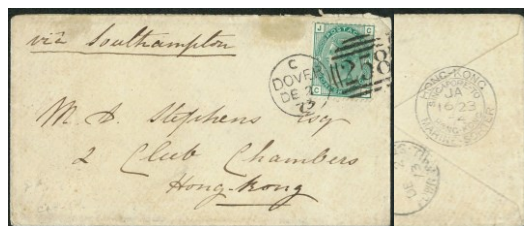 via Southampton
POSTAGE
J C
C G
C
DOVER
DE 2
73
258
M. D. Stephens Esq
2 Club Chambers
Hong-Kong
HONG-KONG
JA
16 23
MARINE SORTER